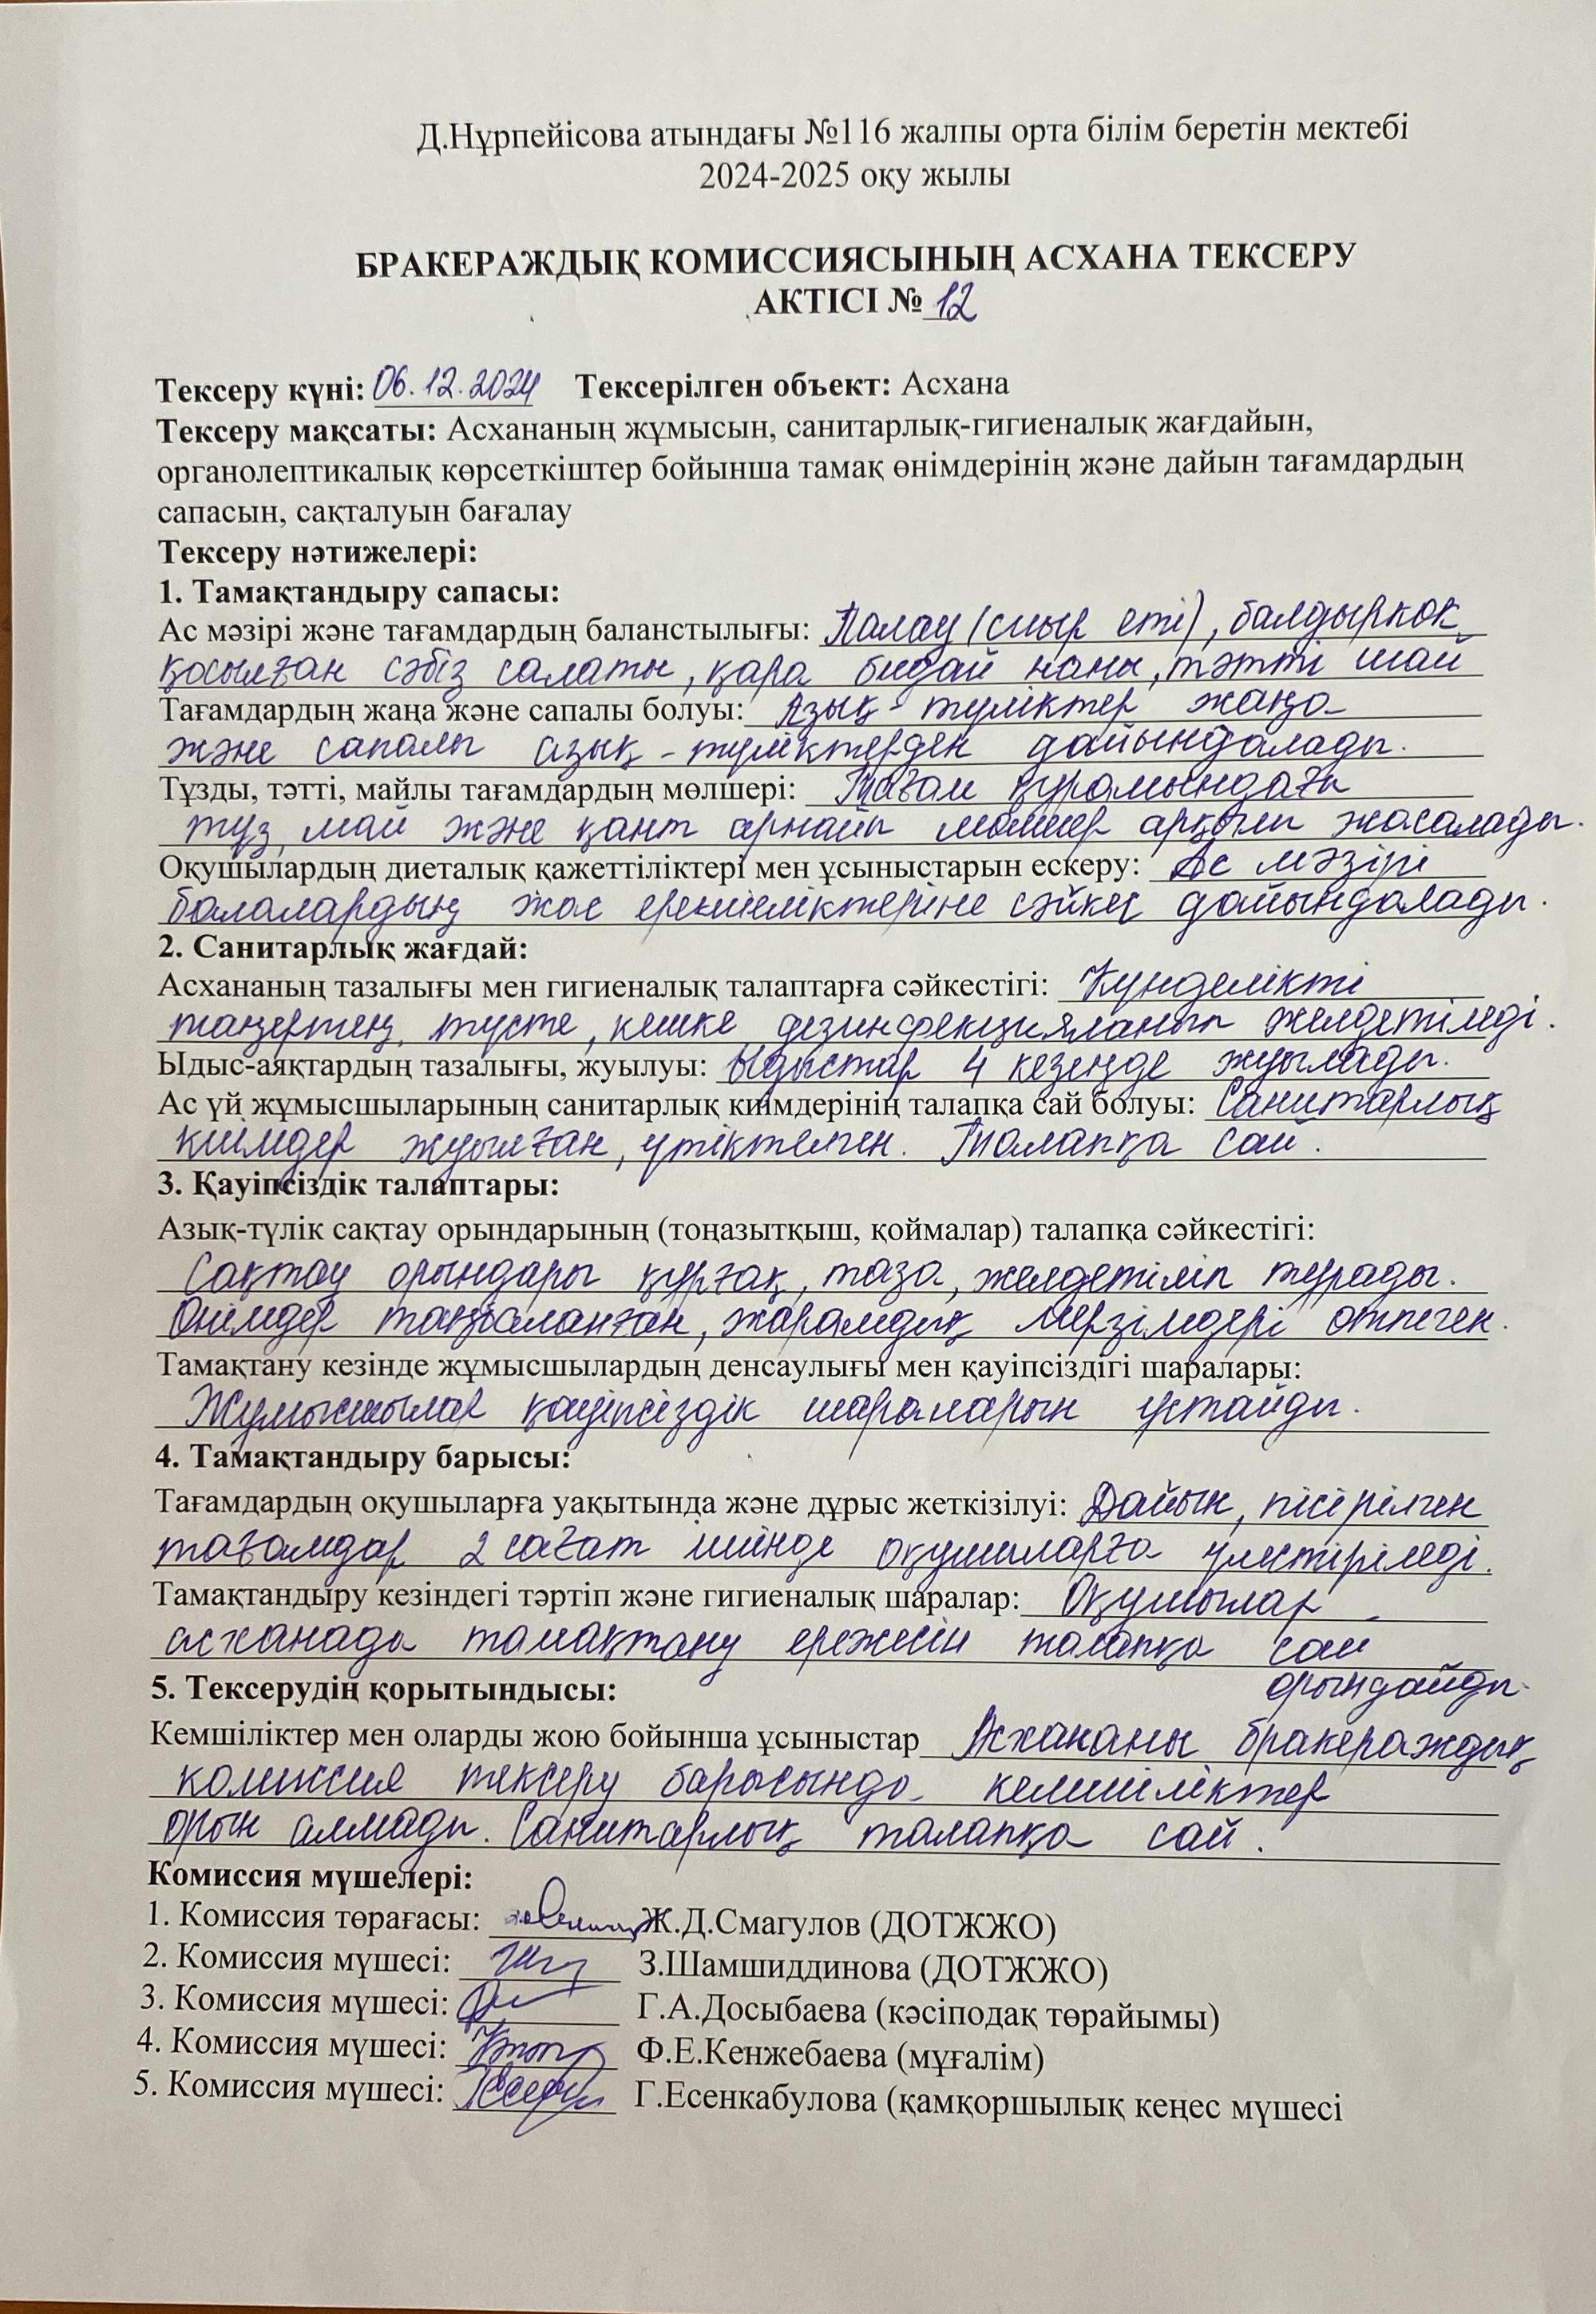 Д.Нұрпейісова атындағы №116 жалпы орта білім беретін мектебі
2024-2025 оқу жылы
БРАКЕРАЖДЫҚ КОМИССИЯСЫНЫҢ АСХАНА ТЕКСЕРУ
АКТІСІ № 12
Тексеру күні: 06.12.2024 Тексерілген объект: Асхана
Тексеру мақсаты: Асхананың жұмысын, санитарлық-гигиеналық жағдайын,
органолептикалық көрсеткіштер бойынша тамақ өнімдерінің және дайын тағамдардың
сапасын, сақталуын бағалау
Тексеру нәтижелері:
1. Тамақтандыру сапасы:
Ас мәзірі және тағамдардың баланстылығы: Палау (сиыр еті), балдыркөк
қосылған сәбіз салаты, қара бидай наны, тәтті шай
Тағамдардың жаңа және сапалы болуы: Азық-түліктер жаңа
және сапалы азық-түліктерден дайындалады.
Тұзды, тәтті, майлы тағамдардың мөлшері: Тағам құрамындағы
тұз, май және қант арнайы мөлшер арқылы жасалады.
Оқушылардың диеталық қажеттіліктері мен ұсыныстарын ескеру: Ас мәзірі
балалардың жас ерекшеліктеріне сәйкес дайындалады.
2. Санитарлық жағдай:
Асхананың тазалығы мен гигиеналық талаптарға сәйкестігі: Күнделікті
таңертең, түсте, кешке дезинфекцияланып желдетіледі.
Ыдыс-аяқтардың тазалығы, жуылуы: Ыдыстар 4 кезеңде жуылады.
Ас үй жұмысшыларының санитарлық киімдерінің талапқа сай болуы: Санитарлық
киімдер жуылған, үтіктелген. Талапқа сай.
3. Қауіпсіздік талаптары:
Азық-түлік сақтау орындарының (тоңазытқыш, қоймалар) талапқа сәйкестігі:
Сақтау орындары құрғақ, таза, желдетіліп тұрады.
Өнімдер таңбаланған, жарамдық мерзімдері өтпеген.
Тамақтану кезінде жұмысшылардың денсаулығы мен қауіпсіздігі шаралары:
Жұмысшылар қауіпсіздік шараларын ұстайды.
4. Тамақтандыру барысы:
Тағамдардың оқушыларға уақытында және дұрыс жеткізілуі: Дайын, пісірілген
тағамдар 2 сағат ішінде оқушыларға үлестіріледі.
Тамақтандыру кезіндегі тәртіп және гигиеналық шаралар: Оқушылар
асханада тамақтану ережесін талапқа сай
орындайды.
5. Тексерудің қорытындысы:
Кемшіліктер мен оларды жою бойынша ұсыныстар Асхананы бракераждық
комиссия тексеру барысында кемшіліктер
орын алмады. Санитарлық талапқа сай.
Комиссия мүшелері:
1. Комиссия төрағасы: Ж.Д.Смагулов (ДОТЖЖО)
2. Комиссия мүшесі: З.Шамшиддинова (ДОТЖЖО)
3. Комиссия мүшесі: Г.А.Досыбаева (кәсіподақ төрайымы)
4. Комиссия мүшесі: Ф.Е.Кенжебаева (мұғалім)
5. Комиссия мүшесі: Г.Есенкабулова (қамқоршылық кеңес мүшесі